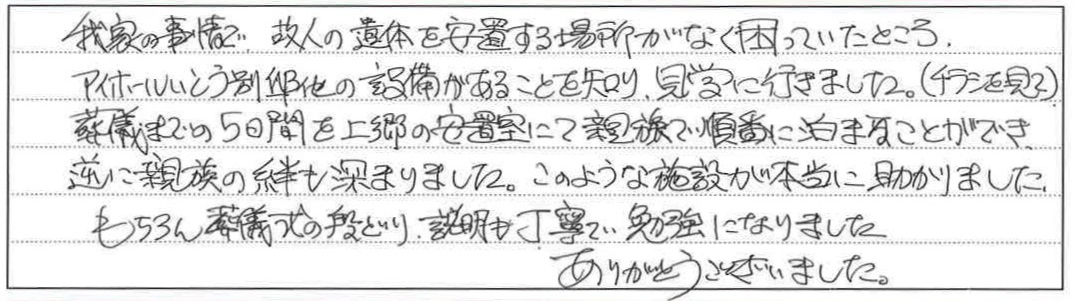 我家の事情で、故人の遺体を安置する場所がなく困っていたところ、
アイホールいとう別邸他の設備があることを知り、見学に行きました。(チラシを見て)
葬儀までの5日間を上郷の安置室にて親族で順番に泊まることができ、
逆に親族の絆も深まりました。このような施設が本当に助かりました。
もちろん葬儀式の段どり、説明も丁寧で勉強になりました
ありがとうございました。